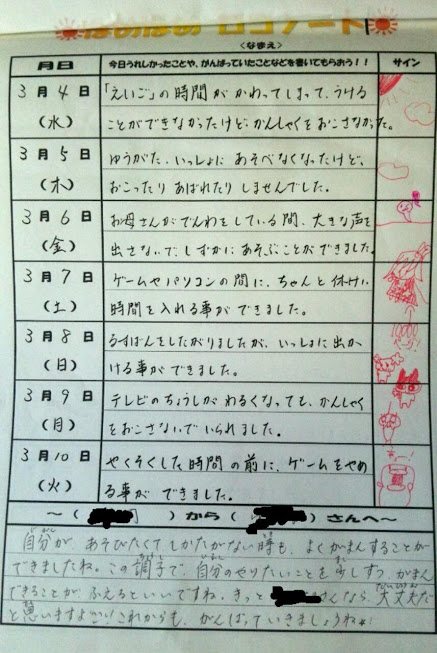 ほめほめ ロコノート
(なまえ)
月日 今日うれしかったことや、がんばっていたことなどを書いてもらおう!! サイン
3月4日 「えいご」の時間がかわってしまって、うける
(水) ことができなかったけど、かんしゃくをおこさなかった。
3月5日 ゆうがた、いっしょにあそべなくなったけど、
(木) おこったりあばれたりしませんでした。
3月6日 お母さんがでんわをしている間、大きな声を
(金) 出さないで、しずかにあそぶことができました。
3月7日 ゲームやパソコンの間に、ちゃんと休けい
(土) 時間を入れる事ができました。
3月8日 るすばんをしたがりましたが、いっしょに出か
(日) ける事ができました。
3月9日 テレビのちょうしがわるくなっても、かんしゃく
(月) をおこさないでいられました。
3月10日 やくそくした時間の前に、ゲームをやめ
(火) る事ができました。
〜( )から( )さんへ〜
自分が、あそびたくてしかたがない時も、よくがまんすることが
できましたね。この調子で、自分のやりたいことを少しずつ、がまん
できることが、ふえるといいですね。きっと さんなら、大丈夫だ
と思いますよ!これからも、がんばっていきましょうね